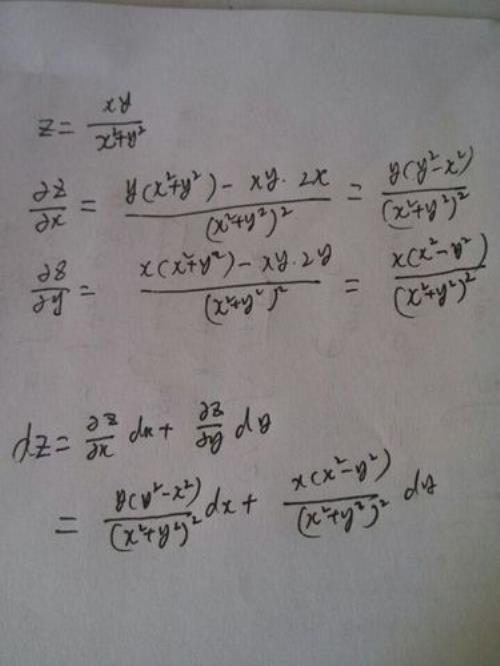 z = \frac{xy}{x^2+y^2}
\frac{∂z}{∂x} = \frac{y(x^2+y^2) - xy·2x}{(x^2+y^2)^2} = \frac{y(y^2-x^2)}{(x^2+y^2)^2}
\frac{∂z}{∂y} = \frac{x(x^2+y^2) - xy·2y}{(x^2+y^2)^2} = \frac{x(x^2-y^2)}{(x^2+y^2)^2}
dz = \frac{∂z}{∂x} dx + \frac{∂z}{∂y} dy
= \frac{y(y^2-x^2)}{(x^2+y^2)^2} dx + \frac{x(x^2-y^2)}{(x^2+y^2)^2} dy